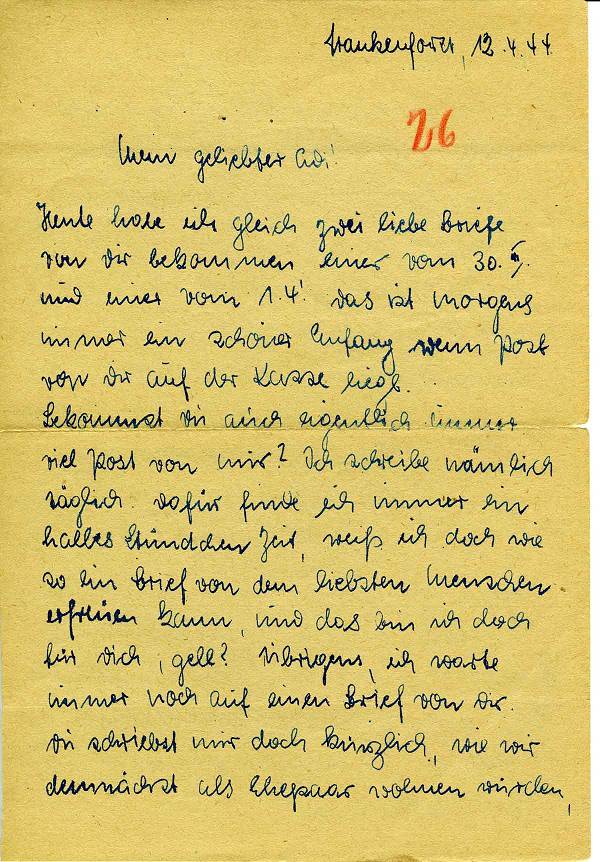 Frankenforst, 12.4.44
26
Mein geliebter Adi!
Heute habe ich gleich zwei liebe Briefe
von dir bekommen einer vom 30.
und einer vom 1.4! das ist morgens
immer ein schöner Anfang wenn Post
von dir auf der Kasse liegt.
Bekommst du auch eigentlich immer
viel Post von mir? Ich schreibe nämlich
täglich. dafür finde ich immer ein
halbes Stündchen Zeit, weiß ich doch wie
so ein Brief von dem liebsten Menschen
erfreuen kann, und das bin ich doch
für dich, gell? Übrigens, ich warte
immer noch auf einen Brief von dir.
du schriebst mir doch kürzlich, wie wir
demnächst als Ehepaar wohnen würden,